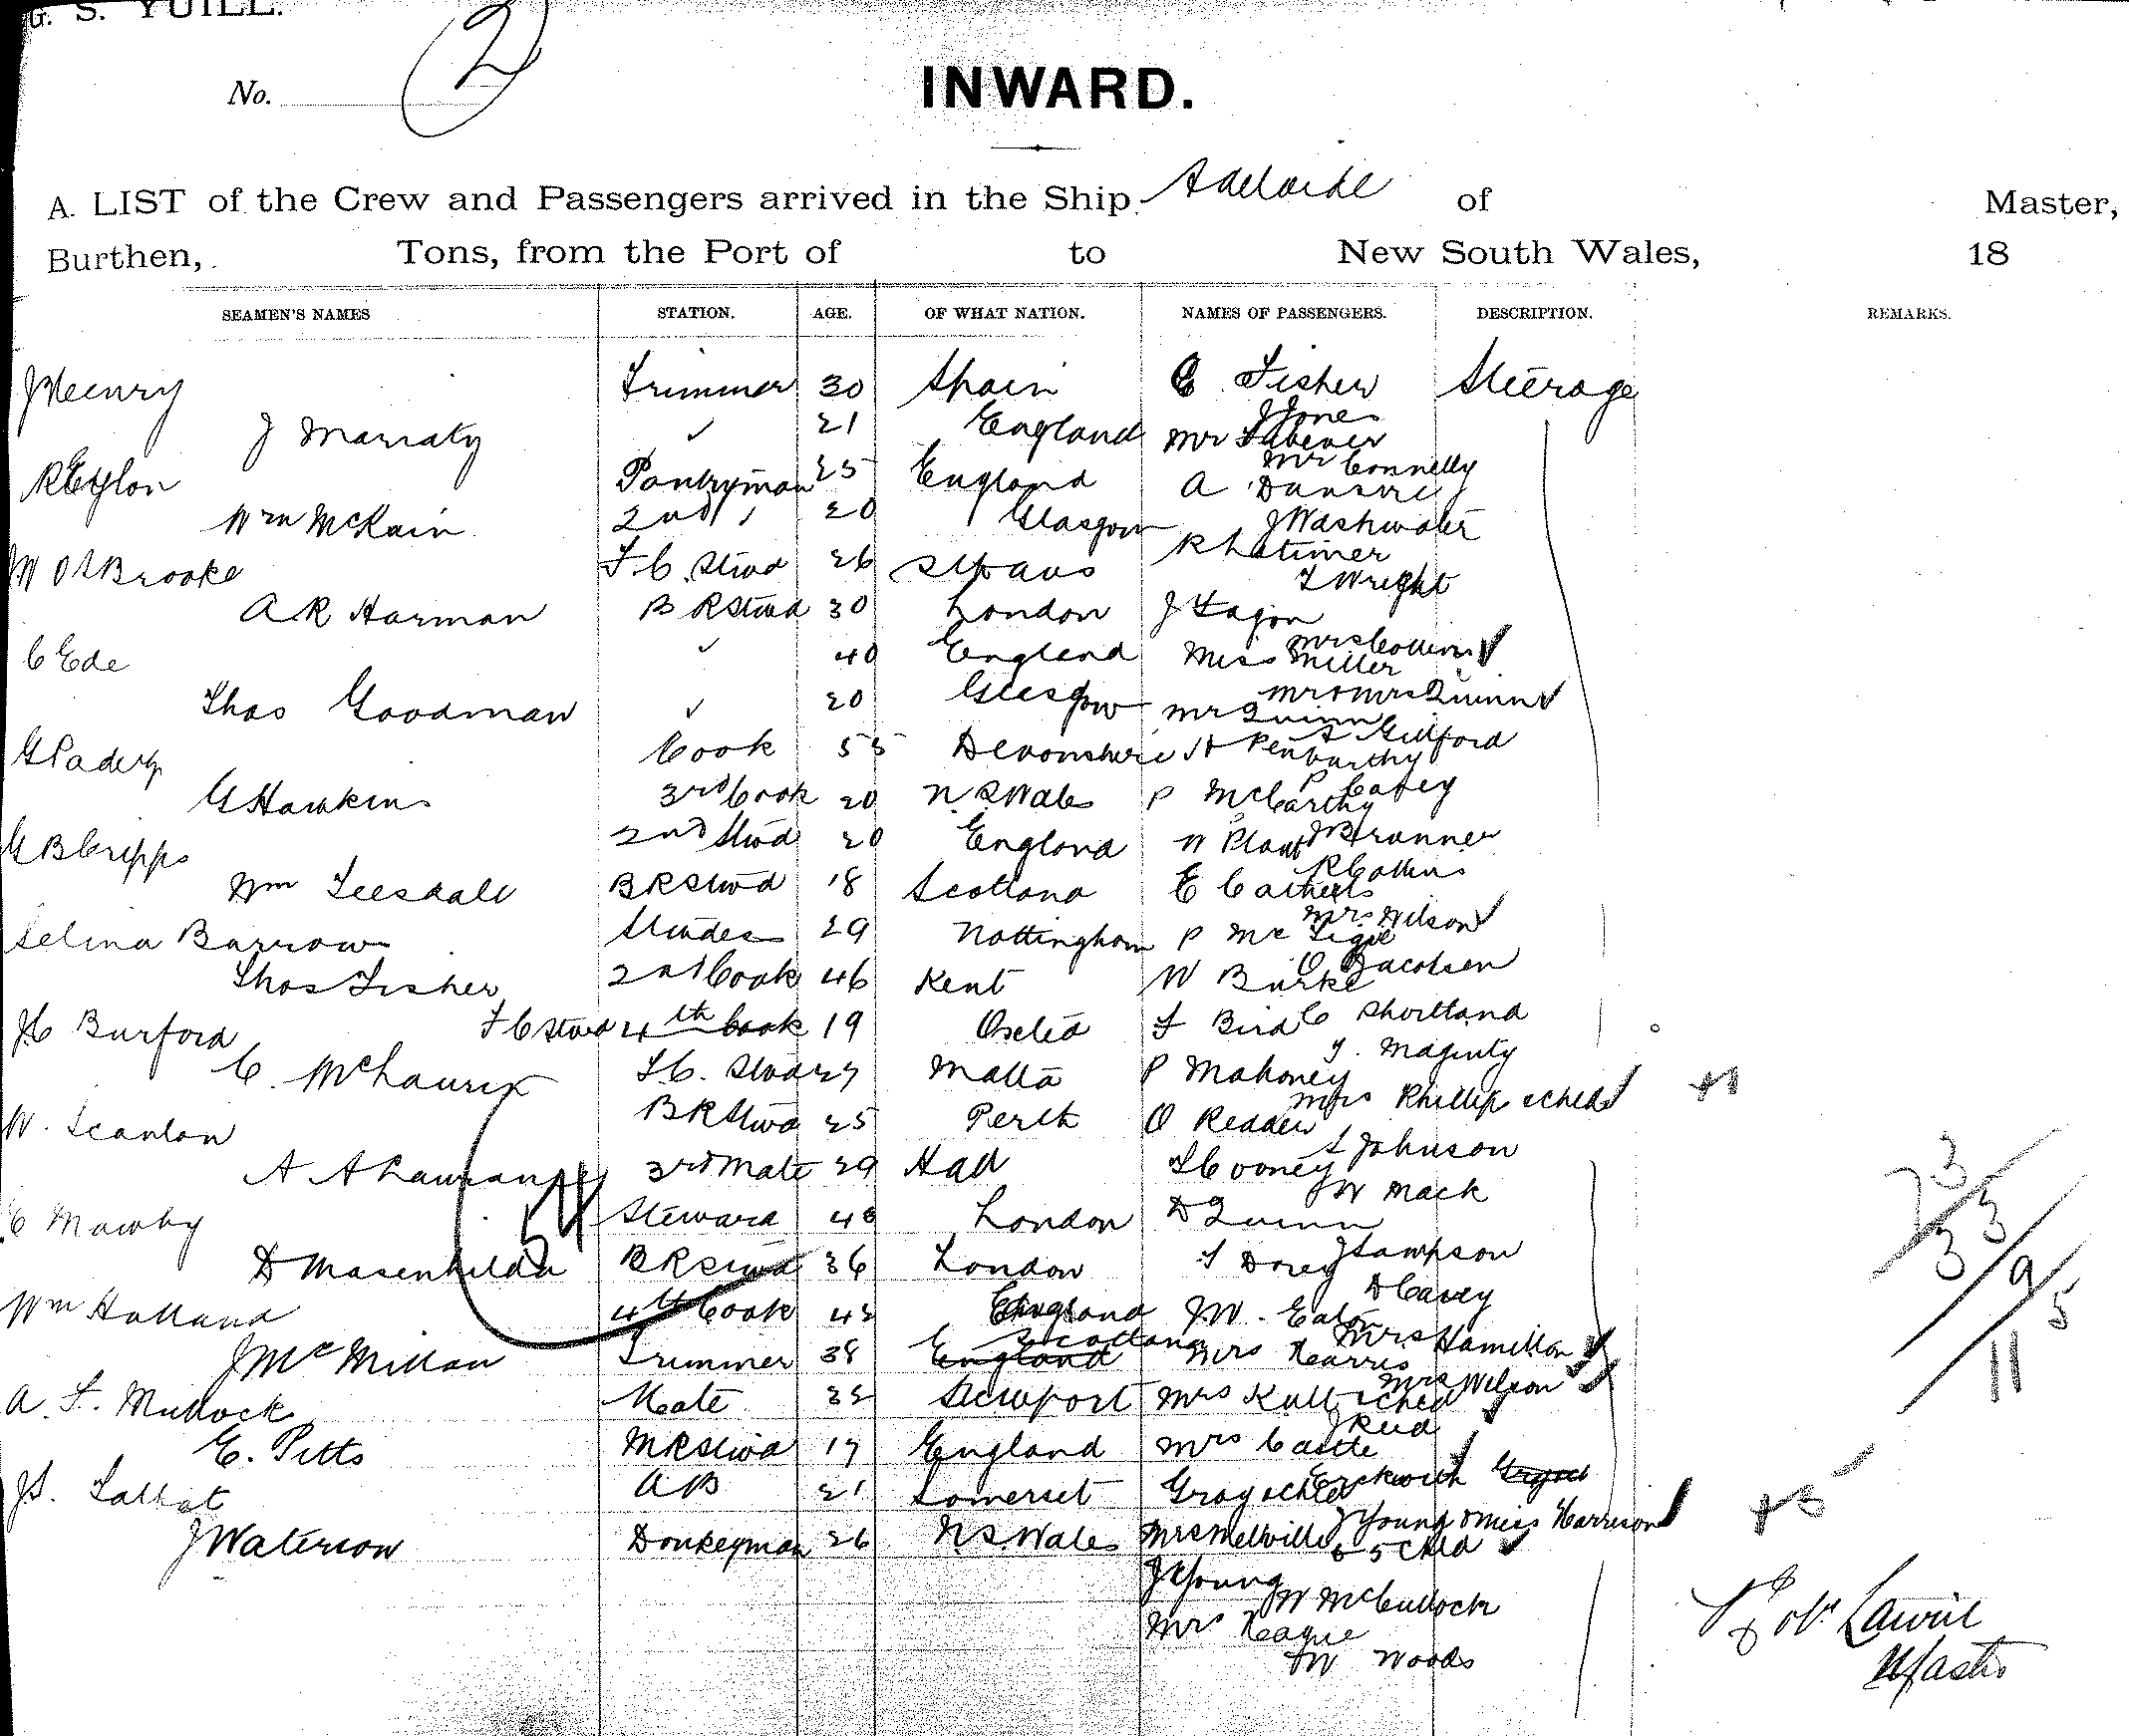 G. S. YUILL.
No. 2
INWARD.
A LIST of the Crew and Passengers arrived in the Ship Adelaide of Master,
Burthen, Tons, from the Port of to New South Wales, 18
SEAMEN'S NAMES STATION. AGE. OF WHAT NATION. NAMES OF PASSENGERS. DESCRIPTION. REMARKS.
J Henry Trimmer 30 Spain C Fisher Steerage
J Jones
J Marraty ✓ 21 England Mr
Mr Connelly
Pantryman 25 England A
Wm McKain 2nd " 20 Glasgow J Washwater
R Latimer
Brooke F. C. Stwd 26
T Wright
A R Harman B R Stwd 30 London J
Mrs Collins ✓
C Ede ✓ 40 England Miss Miller
Mr & Mrs Quinn ✓
Thos Goodman ✓ 20 Glasgow Mr Quinn
Gulford
G Padery Cook 55 Devonshire H Penburthy
P Cavey
G Hawkins 3rd Cook 20 N. S Wales P McCarthy
J Brunner
G B Cripps 2nd Stwd 20 England W Plant
R Collins
Wm Leesdall B R Stwd 18 Scotland E
Mrs Wilson ✓
Selina Barrow Stwdess 29 Nottingham P McTigue
O Jacobsen
Thos Fisher 2nd Cook 46 Kent W Burke
C Shortland
J C Burford F C Stwd 4th Cook 19 F Bird
Maginty
C. McLaurin F. C. Stwd 27 Malta P Mahoney
Mrs Phillip & child ✓ +1
W. Scanlon B R Stwd 25 Perth O
S Johnson
A A 3rd Mate 29 T Cooney
W Mack
C Mawby Steward 48 London D Quinn
J Sampson
54
D B R Stwd 36 London T Dorey
D Cavey
Wm Holland 4th Cook 42 England J W. Eaton
Scotland Mrs Hamilton ✓
J McMillan Trimmer 38 England Mrs Harris
Mrs Wilson ✓
A. F. Mullock Mate 32 Newport Mrs & child ✓
J Reid
E. Pitts M R Stwd 17 England Mrs Castle
J S. Talbot A B 21 Somerset Gray & child
J Young & Miss Harrison ✓
J Waterson Donkeyman 26 N. S. Wales Mrs Melville & 5 child ✓ +5
J Young
W McCullock
Mrs Hague
W Woods
33
9
5
11
Lawrie
Master